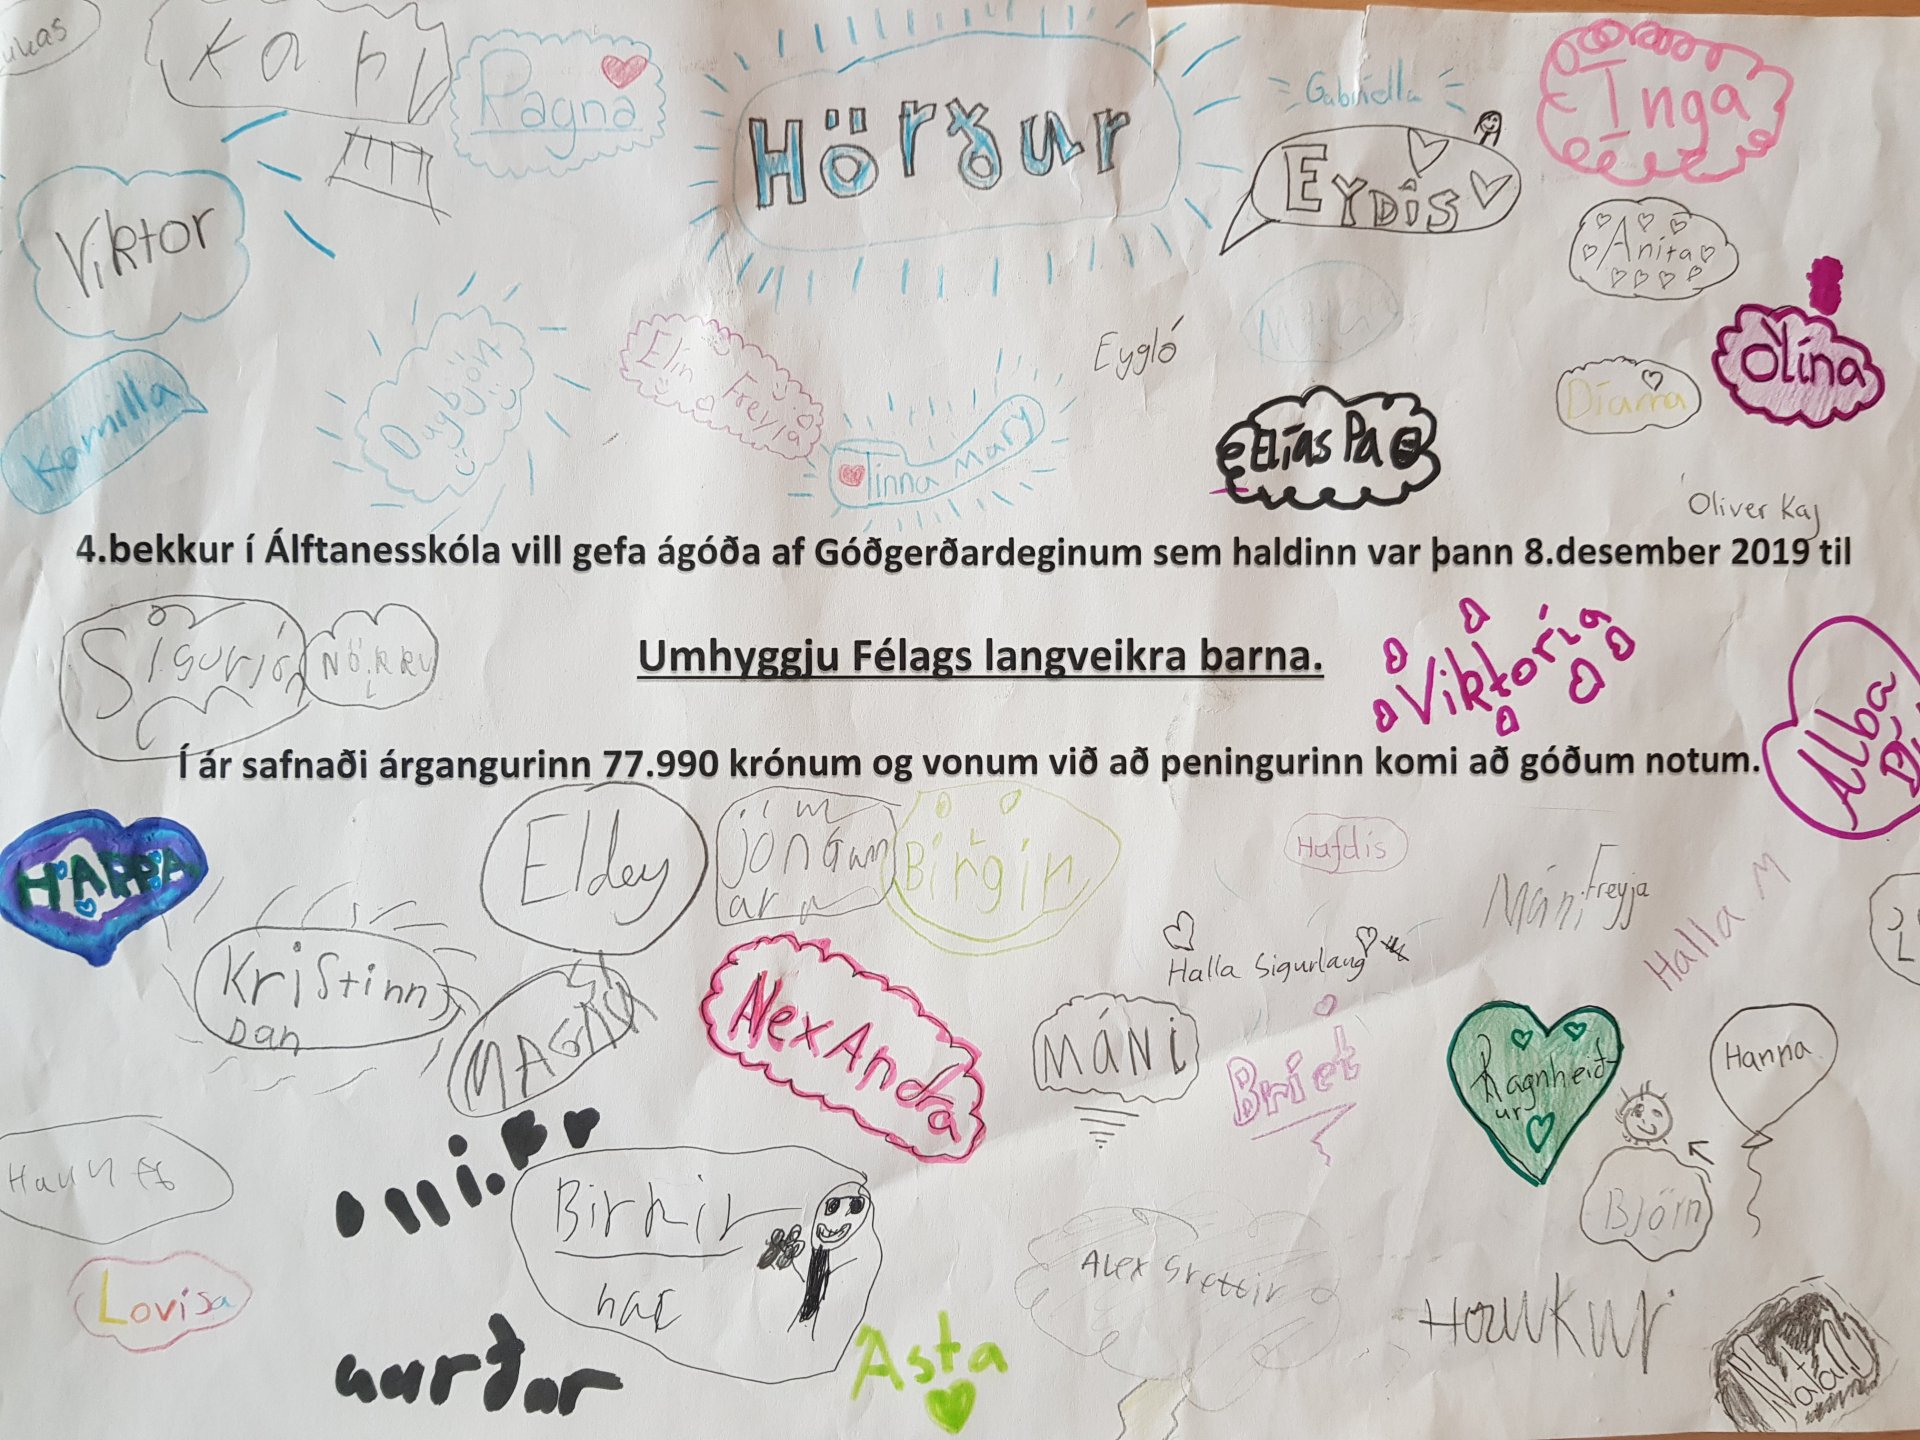 Karl
Ragna
Hörður
Gabriella
Inga
Eydís
Viktor
Aníta
Ólína
Eygló
Kamilla
Dagbjört
Elín Freyja
Tinna Mary
Elías Pa
Oliver Kaj
4.bekkur í Álftanesskóla vill gefa ágóða af Góðgerðardeginum sem haldinn var þann 8.desember 2019 til
Sigurjón
Nökkvi
Umhyggju Félags langveikra barna.
Viktoría
Alba
Í ár safnaði árgangurinn 77.990 krónum og vonum við að peningurinn komi að góðum notum.
HARPA
Eldey
Jón Gunn
ar
Birgir
Hafdís
Máni Freyja
Halla M
Halla Sigurlaug
Kristinn
Dan
MAGNÚ
AlexAndra
MÁNi
Bríet
Ragnheið
ur
Hanna
Björn
Birkir
Lovísa
Alex Grettir
Haukur
Ásta
Natan